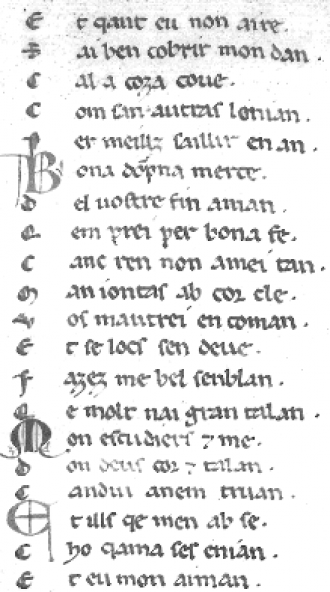 E t qant eu non aire.
S ai ben cobrir mon dan.
C al a coza coue.
C om san autras lonian.
P er meillz saillir en an.
B ona dopna merce.
D el uostre fin aman.
Q em prei per bona fe.
C anc ren non amei tan.
M an iontas ab col cle.
V os mautrei en coman.
E t se locs sen deue.
F azez me bel senblan.
Q e molt nai gran talan.
M on escudiers ⁊ me.
D on deus cor ⁊ talan.
C andui anem truan.
E t ills qe men ab se.
C ho qama ses enian.
E t eu mon aiman.